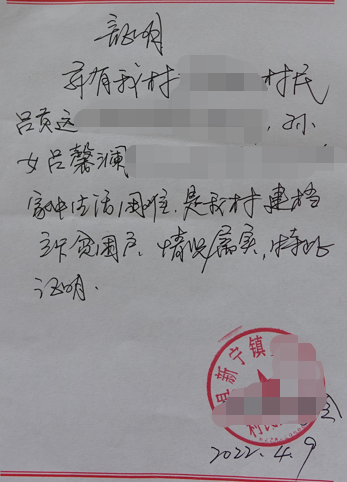 证明
兹有我村 村民
吕贡达 , 孙
女吕馨澜
家中生活困难,是我村建档
立卡贫困户,情况属实,特此
证明.
县新宁镇
村民 会
2022.4.9